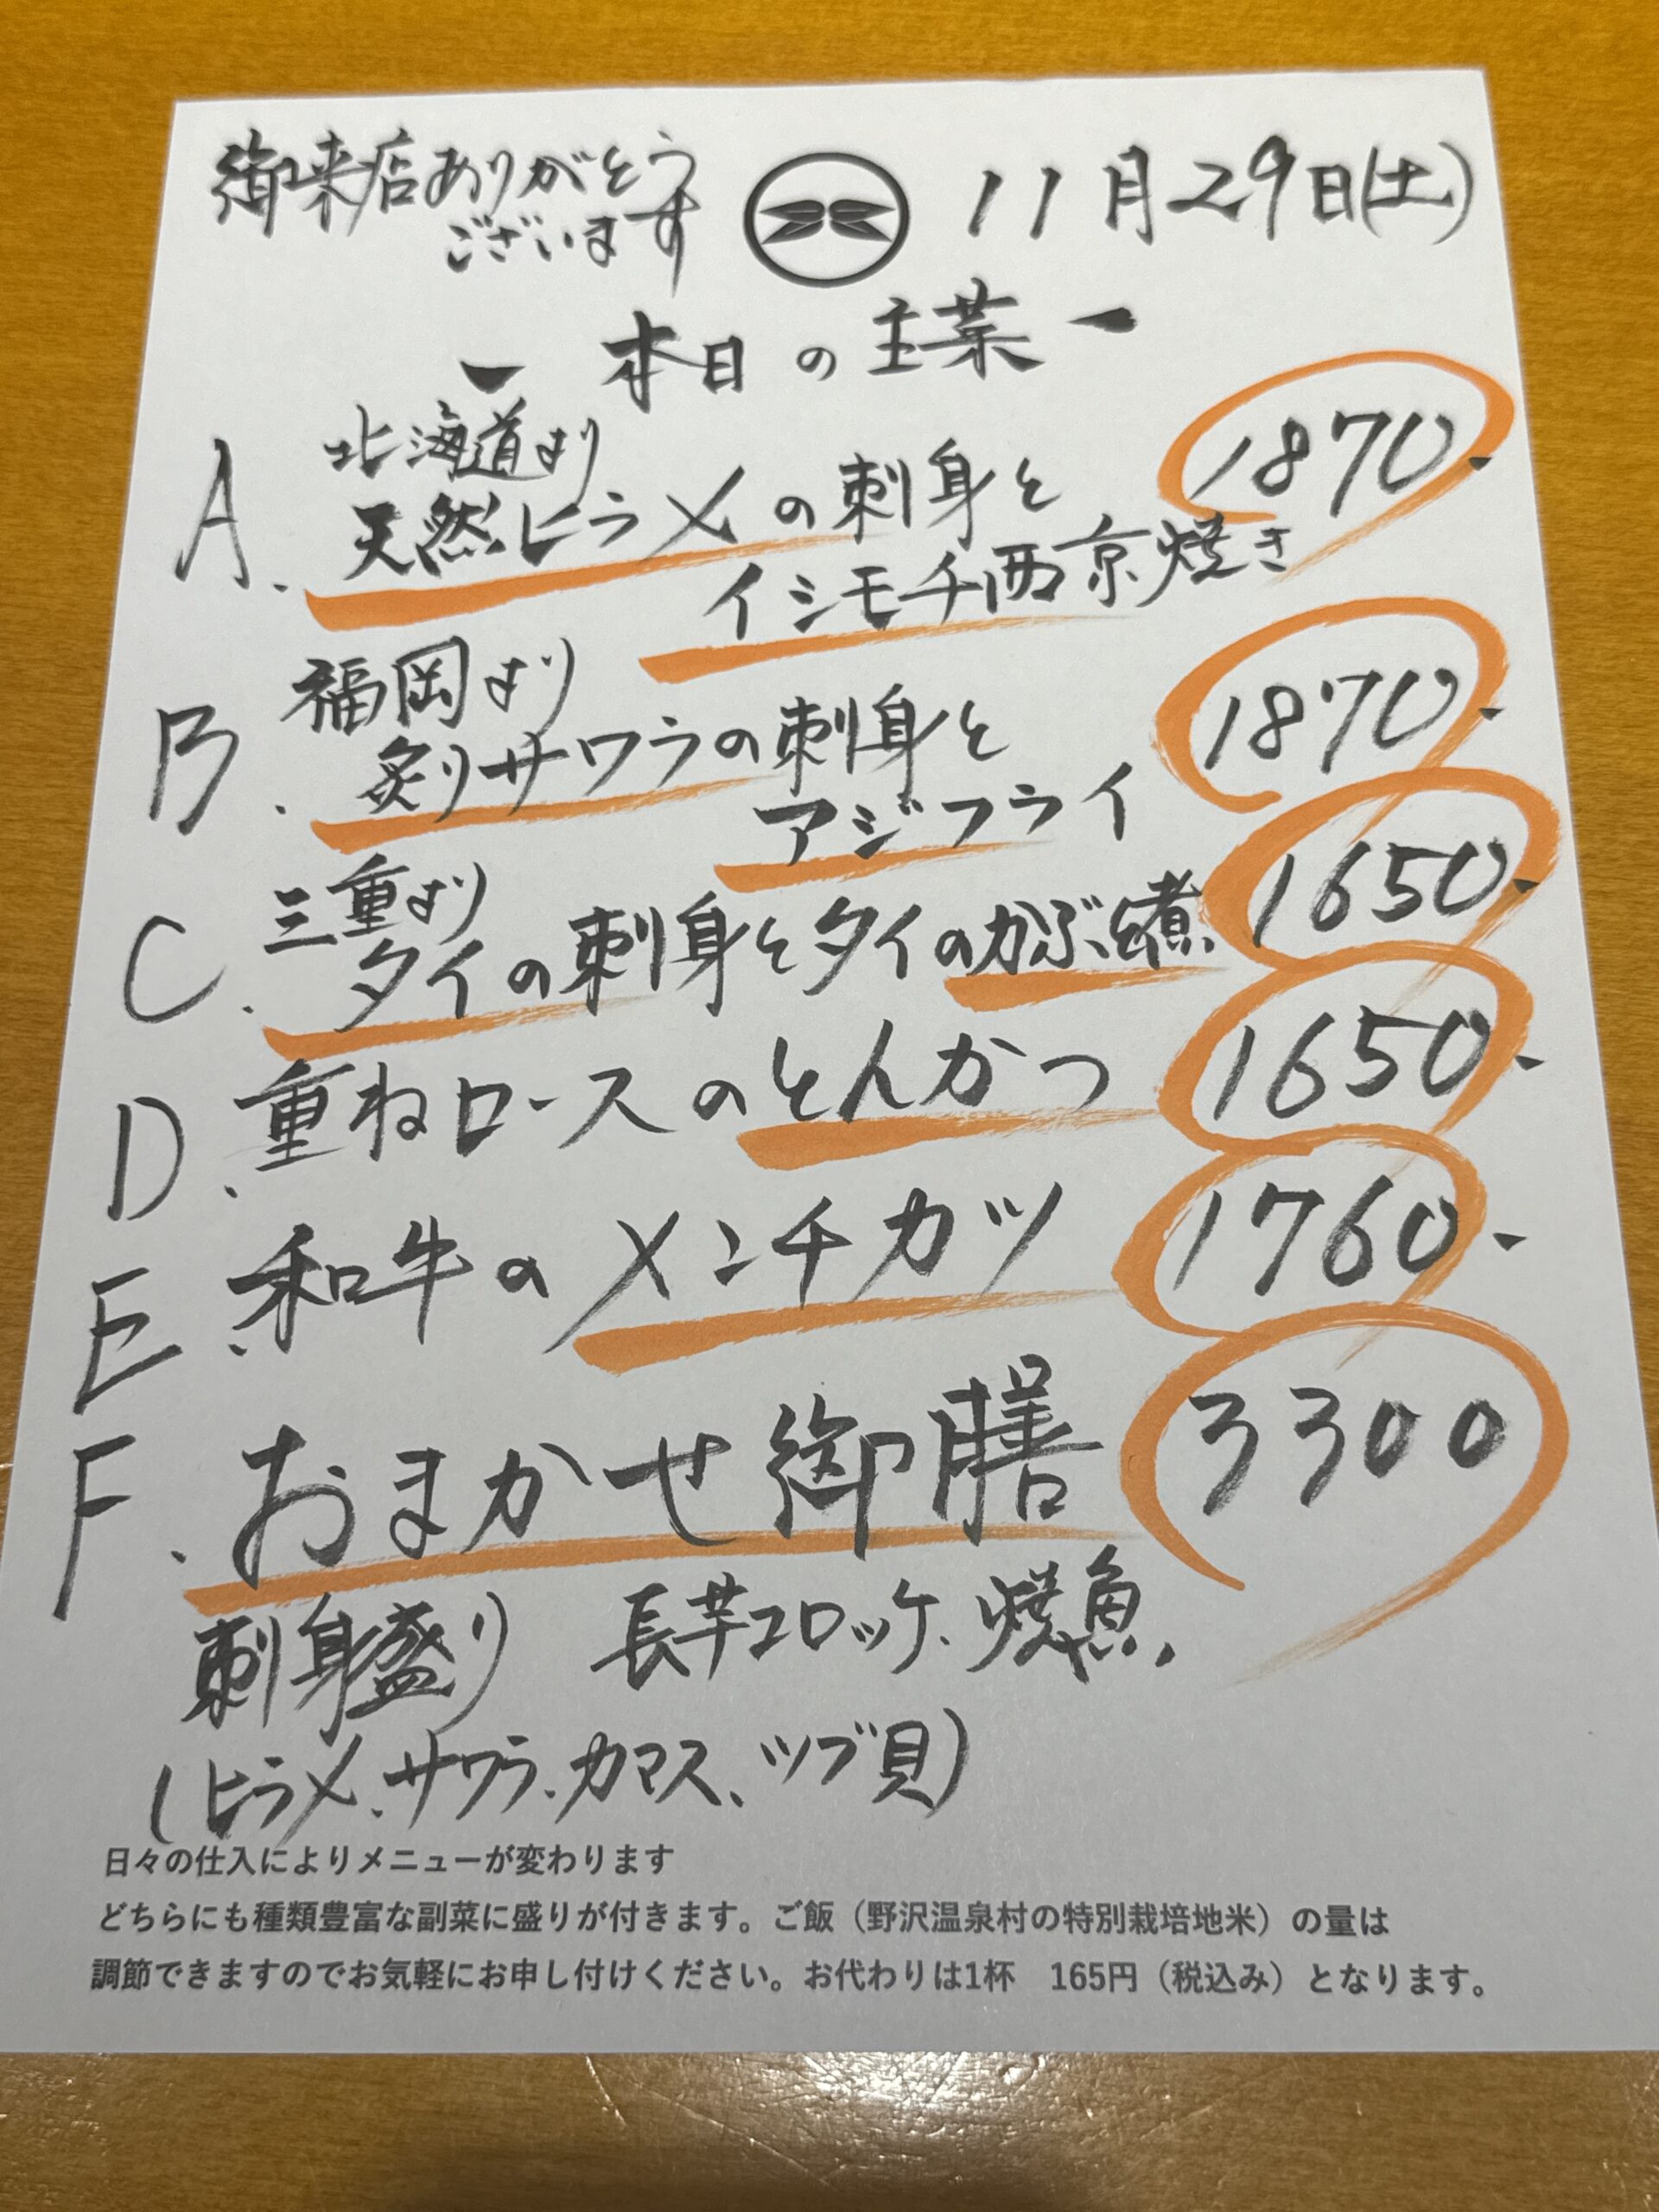 御来店ありがとう
ございます
11月29日(土)
ー 本日の主菜 ー
A. 北海道より
天然ヒラメの刺身と
イシモチ西京焼き
1870.
B. 福岡より
炙りサワラの刺身と
アジフライ
1870.
C. 三重より
タイの刺身とタイのかぶと煮
1650.
D. 重ねロースのとんかつ 1650.
E. 和牛のメンチカツ 1760.
F. おまかせ御膳 3300
刺身盛り 長芋コロッケ、焼魚、
(ヒラメ、サワラ、カマス、ツブ貝)
日々の仕入によりメニューが変わります
どちらにも種類豊富な副菜に盛りが付きます。ご飯（野沢温泉村の特別栽培地米）の量は
調節できますのでお気軽にお申し付けください。お代わりは1杯 165円（税込み）となります。